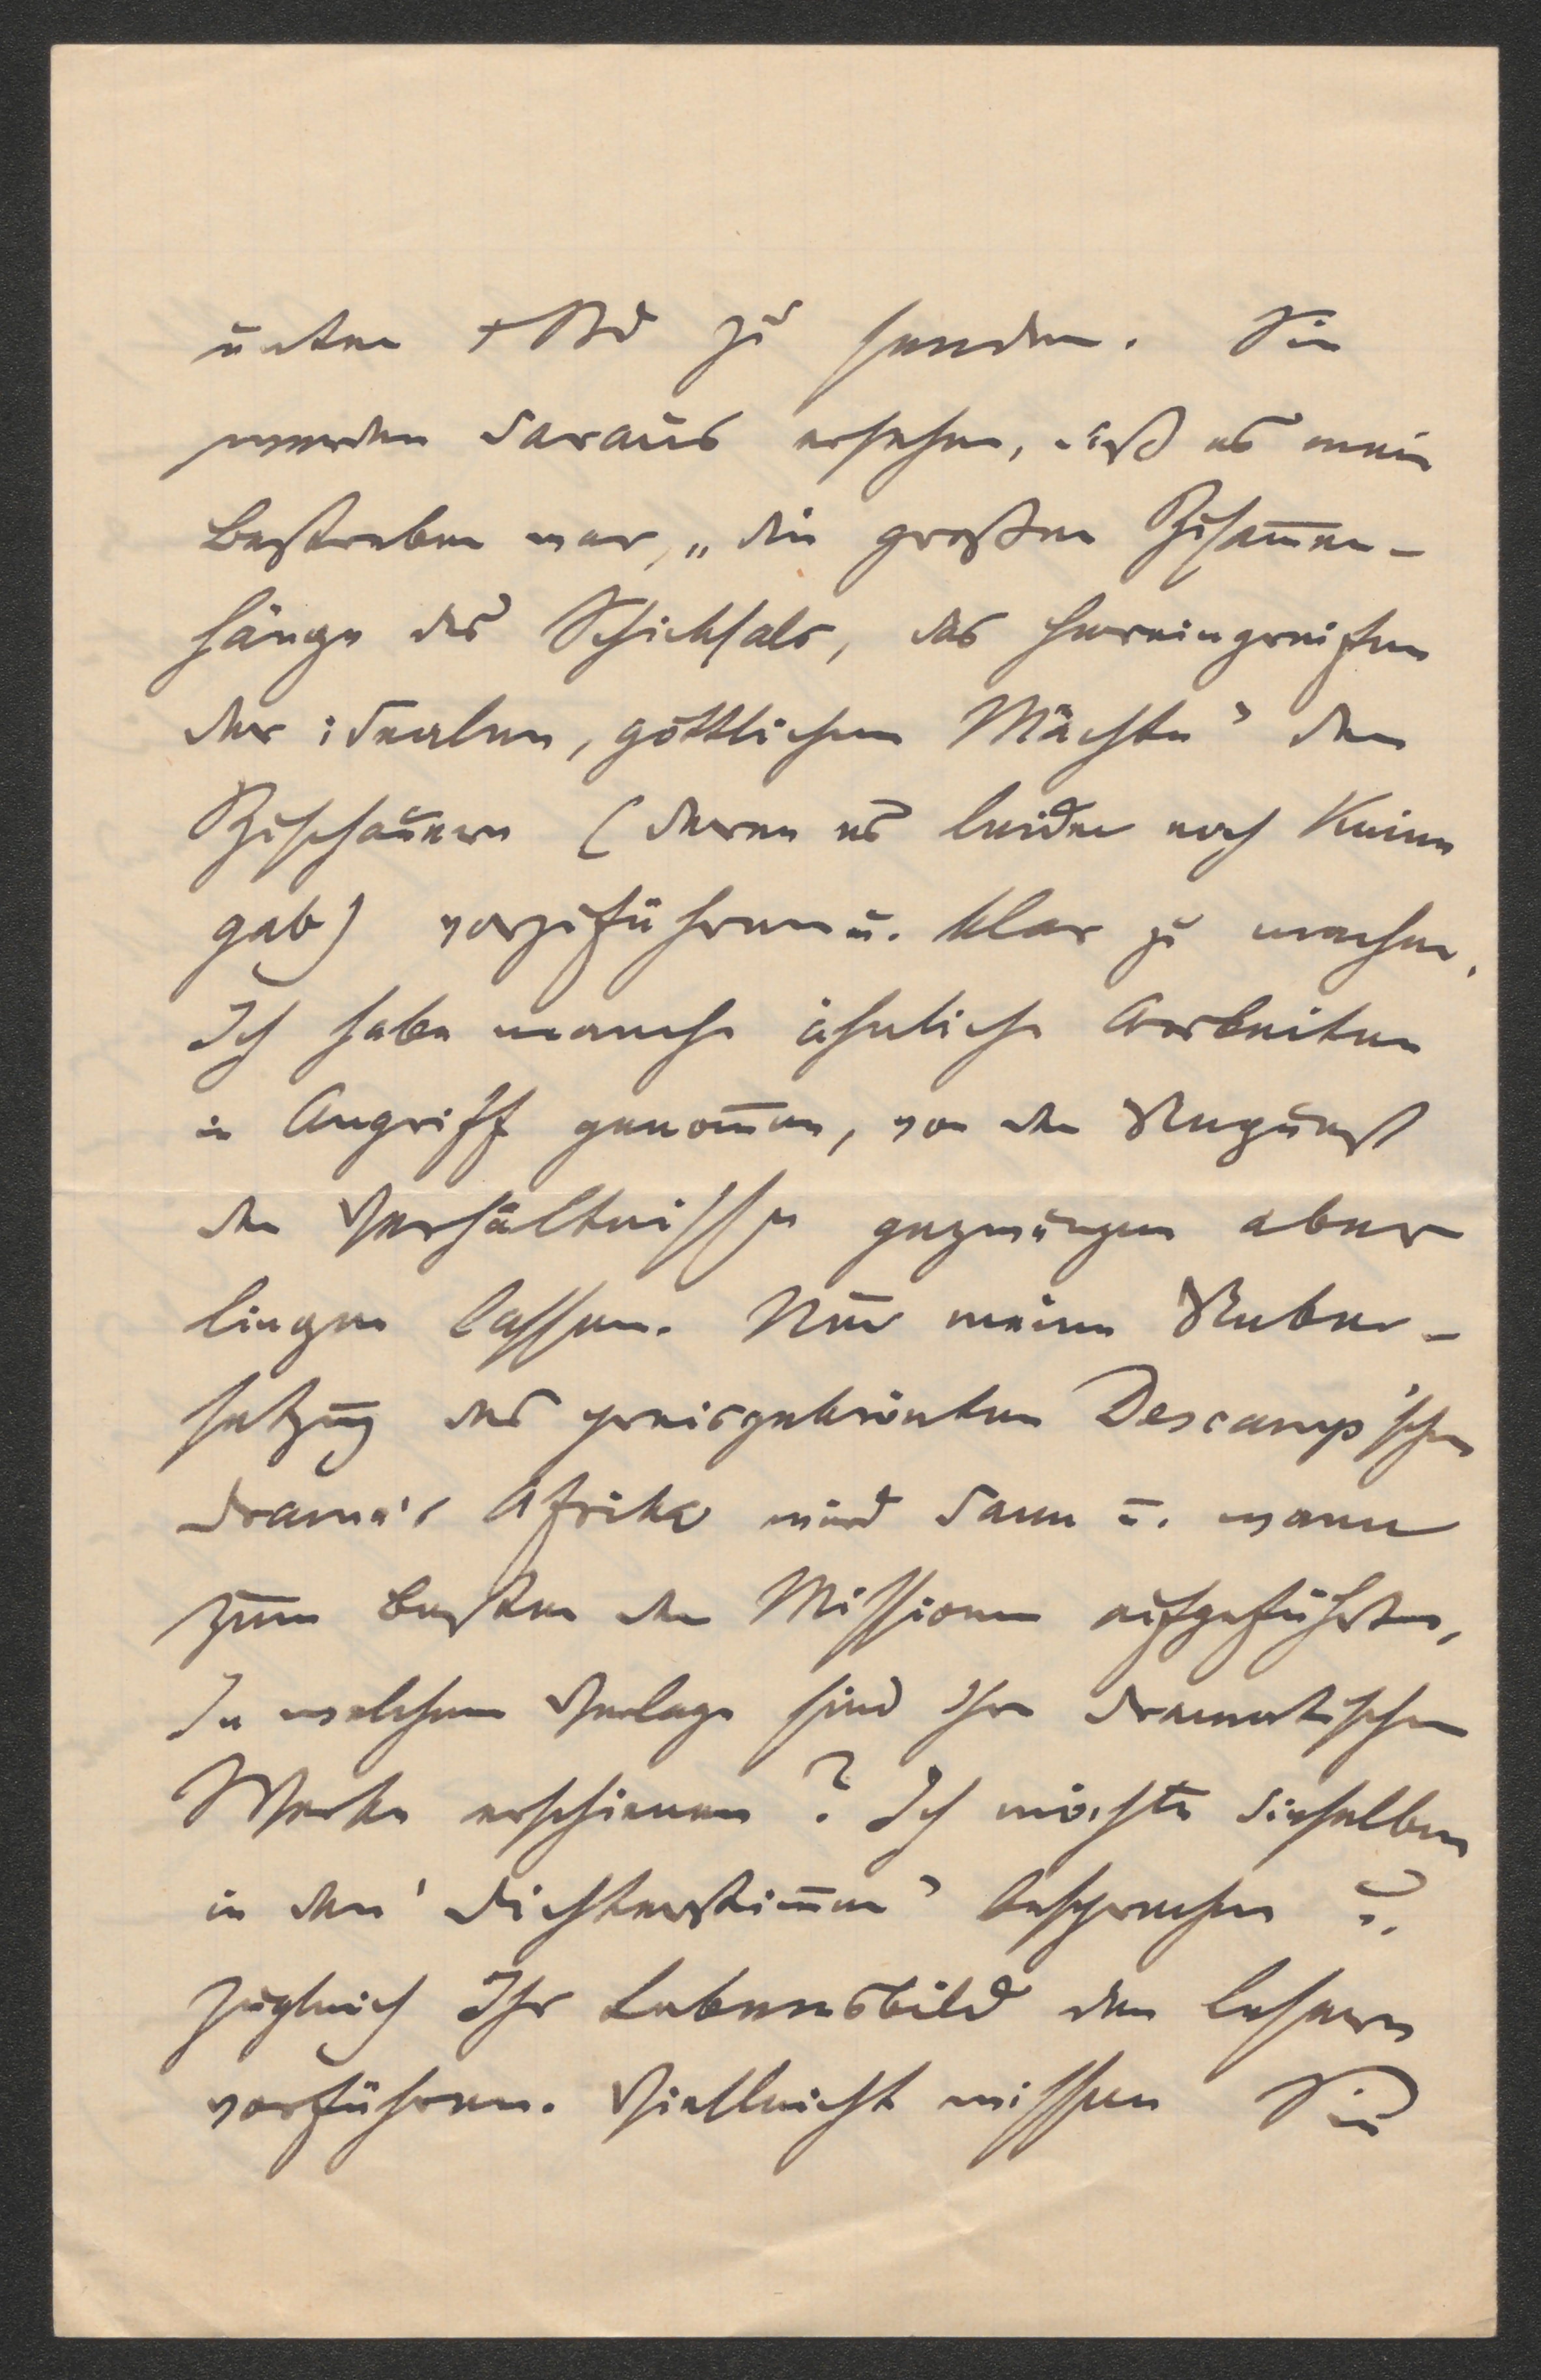 unter +Bd zu senden. Sie
werden daraus ersehen, daß es mein
Bestreben war, „die großen Zusam̄en-
hänge des Schicksals, das Hereingreifen
der idealen, göttlichen Mächte" den
Zuschauern (deren es leider noch keine
gab) vorzuführen u. klar zu machen.
Ich habe manche ähnliche Arbeiten
in Angriff genom̄en, von der Ungunst
der Verhältnisse gezwungen aber
liegen lassen. Nur meine Ueber-
setzung des preisgekrönten Descamp'schen
Drama's Afrika wird dann u. wann
zum Besten der Missionen aufgeführt.
In welchem Verlage sind Ihre dramatischen
Werke erschienen? Ich möchte dieselben
in den 'Dichterstim̄en' besprechen u.
zugleich Ihr Lebensbild den Lesern
vorführen. Vielleicht wissen Sie